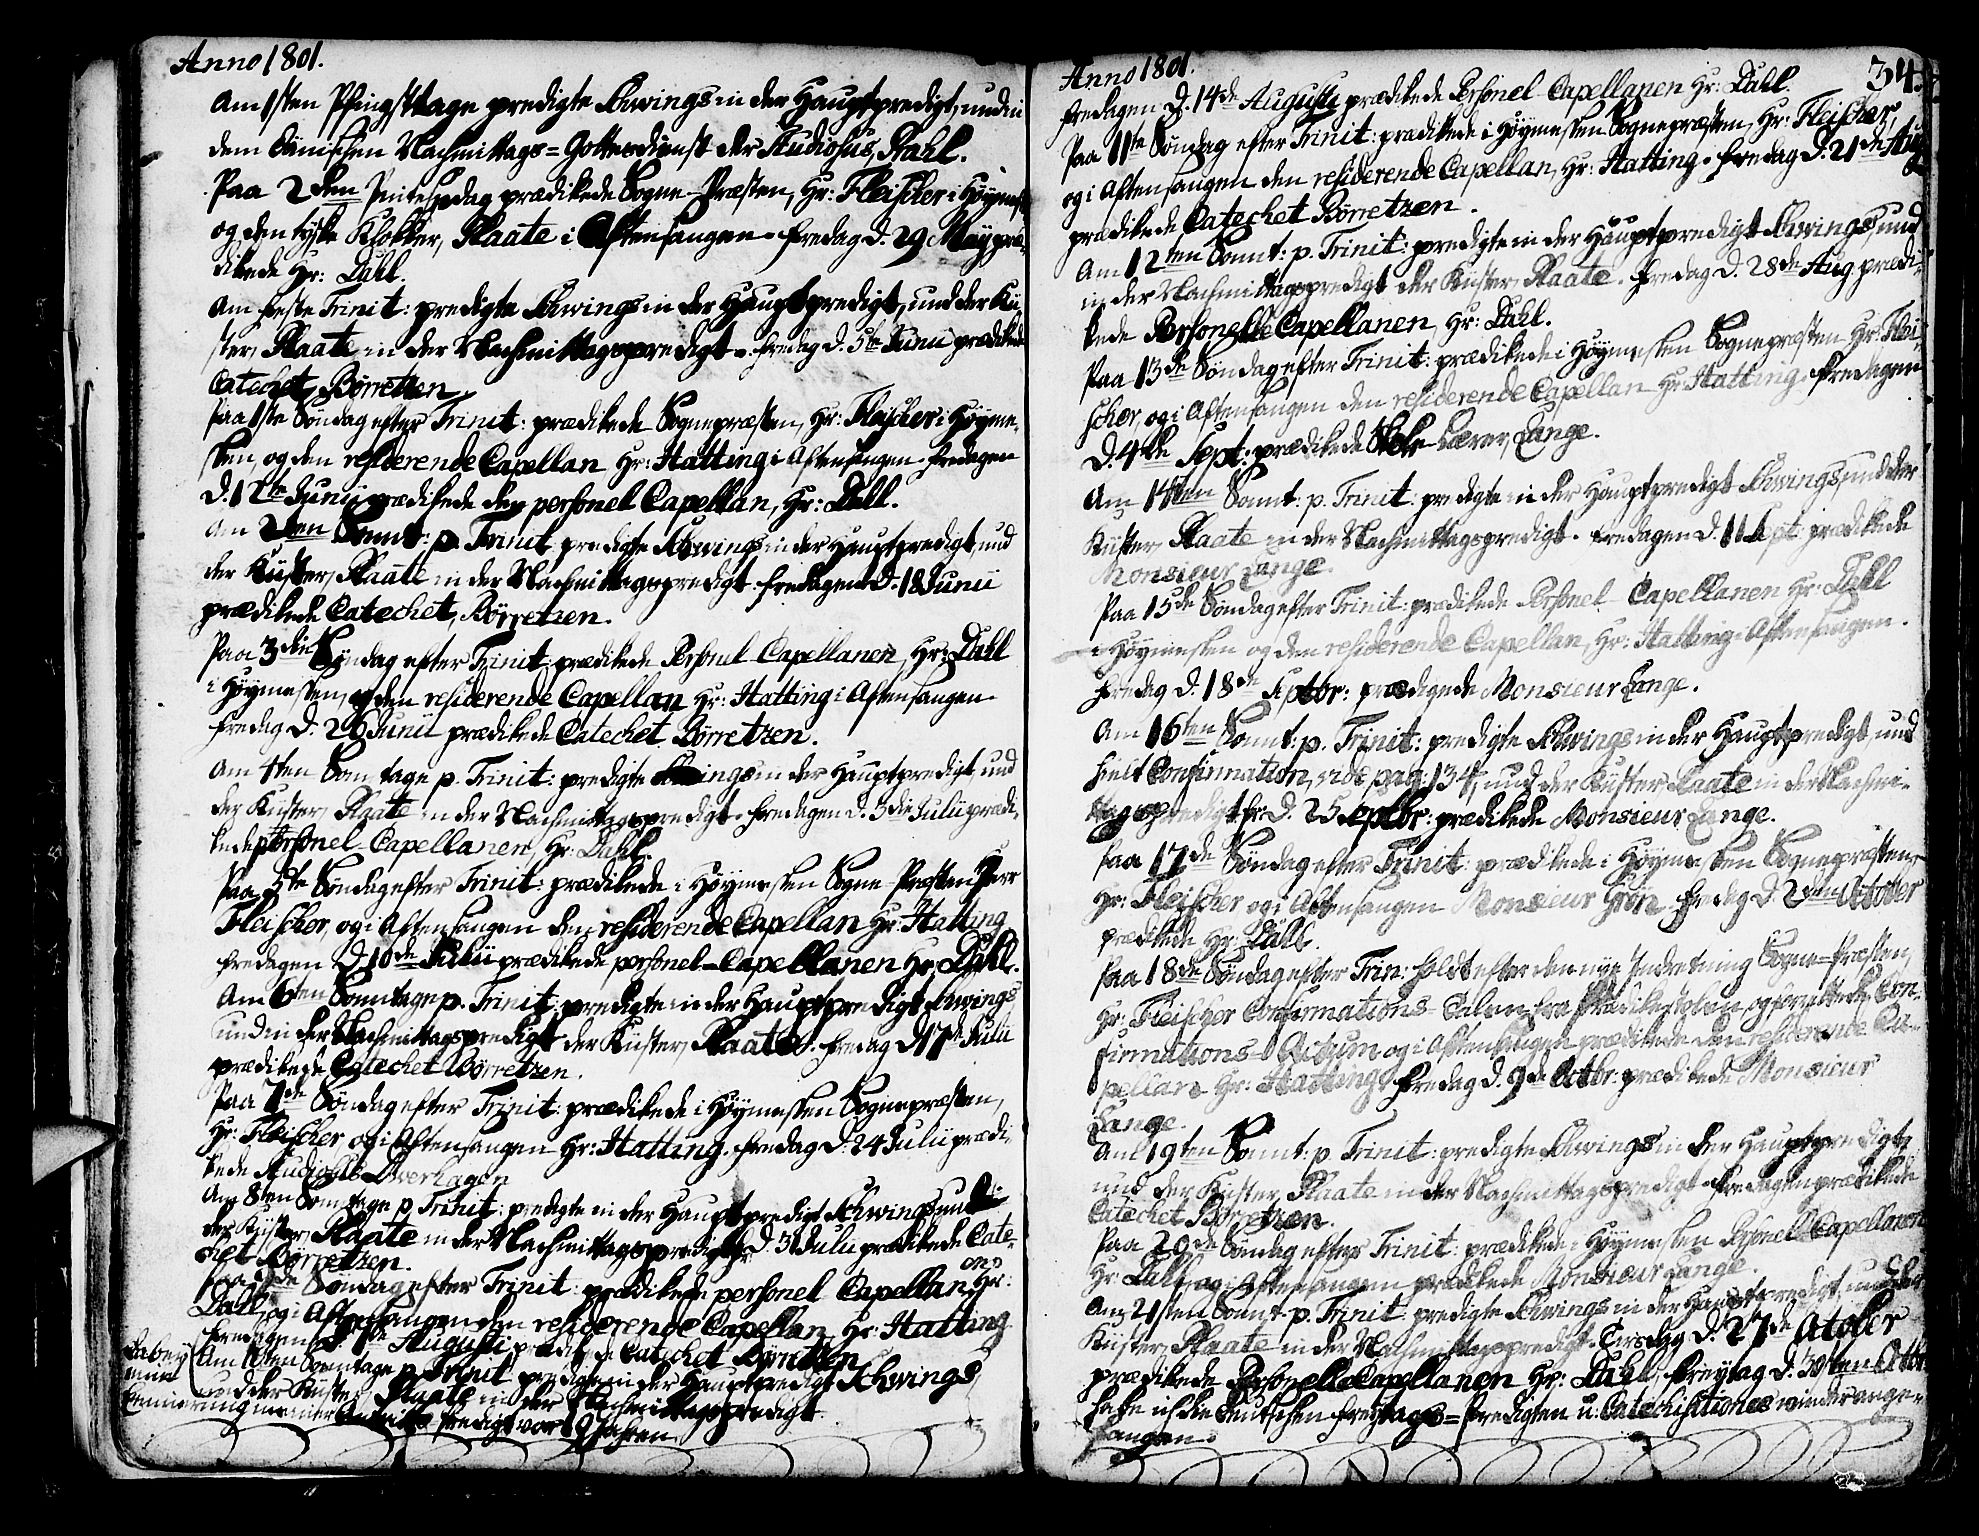 Anno 1801.
Am 1sten Pfingsttage predigte Schwings in der Hauptpredigt, und in
dem Dänischen Nachmittags=Gottesdienst der Studiosus, Stahl.
Paa 2den Pintsedag prædikede Sogne-Præsten, Hr: Fleischer i Høymess:
og den tyske Klokker, Plaate i Aftensangen. Fredag d. 29 May præ-
dikede Hr: Dahl.
Am Feste Trinit: predigte Schwings in der Hauptpredigt, und der Kü-
ster, Plaate in der Nachmittagspredigt. Fredag d. 5te Junii prædikede
Catechet, Børretzen.
Paa 1ste Søndag efter Trinit: prædikede Sognepræsten, Hr: Fleischer i Høyme-
sken, og den residerende Capellan, Hr: Hatting i Aftensangen. Fredagen
D. 12te Junii prædikede den personel Capellan, Hr: Dahl.
Am 2ten Sonnt: p. Trinit. predigte Schwings in der Hauptpredigt, und
der Küster, Plaate in der Nachmittagspredigt. Fredagen d. 18 Junii
prædikede Catechet, Børretzen.
Paa 3die Søndag efter Trinit: prædikede Personel-Capellanen, Hr: Dahl
i Høymesken, og den residerende Capellan Hr: Hatting i Aftensangen.
Fredag d. 26 Junii prædikede Catechet Børretzen.
Am 4ten Sonntage p. Trinit: predigte Schwings in der Hauptpredigt und
der Küster, Plaate in der Nachmittagspredigt. Fredagen d. 3die Julii prædi-
kede Personel-Capellanen, Hr: Dahl.
Paa 5te Søndag efter Trinit: prædikede i Høymesken Sogne-Præsten Herr
Fleischer, og i Aftensangen den residerende Capellan Hr: Hatting
Fredagen D. 10de Julii prædikede personel-Capellanen Hr: Dahl.
Am 6ten Sonntage p. Trinit: predigte in der Hauptpredigt Schwings
und in der Nachmittagspredigt der Küster, Plaate. Fredag d. 17de Julii
prædikede Catechet Børretzen.
Paa 7de Søndag efter Trinit: prædikede i Høymesken Sognepræsten,
Hr: Fleischer, og i Aftensangen Hr: Hatting. Fredag d. 24 Julii prædi-
kede Studiosus Overhagen
Am 8ten Sonntage p. Trinit: predigte in der Hauptpredigt Schwings und
der Küster, Plaate in der Nachmittagspredigt. d. 31 Julii prædikede Cate-
chet Børretzen.
Paa 9de Søndag efter Trinit: prædikede personel Capellanen Hr:
Dahl, og i Aftensangen den residerende Capellan, Hr: Hatting
Fredagen d. 7de Augusti prædikede Catechet Børretzen
Am 10ten Sonntage p. Trinit predigte in der Hauptpredigt Schwings,
und der Küster, Plaate in der Nachmittagspredigt.
Dabey
meiner Antritts-Predigt vor 19 Jahren.
Anno 1801.
34.
Fredagen D. 14de Augusti prædikede Personel Capellanen Hr: Dahl.
Paa 11te Søndag efter Trinit: prædikede i Høymesken Sognepræsten, Hr: Fleischer,
og i Aftensangen den residerende Capellan, Hr: Hatting. Fredag D. 21de Aug
prædikede Catechet Børretzen.
Am 12ten Sonnt: p. Trinit: predigte in der Hauptpredigt Schwings, und
in der Nachmittagspredigt der Küster, Plaate. Fredag D. 28de Aug prædi-
kede Personelle Capellanen, Hr: Dahl.
Paa 13de Søndag efter Trinit: prædikede i Høymesken Sognepræsten Hr: Flei-
scher, og i Aftensangen den residerende Capellan Hr: Hatting. Fredagen
D. 4de Sept: prædikede Skole-Lærer, Lange.
Am 14ten Sonnt: p. Trinit: predigte in der Hauptpredigt Schwings, und der
Küster, Plaate in der Nachmittagspredigt. Fredagen D. 11 Sept prædikede
Monsieur Lange.
Paa 15de Søndag efter Trinit: prædikede Personel-Capellanen Hr: Dahl
i Høymesken og den residerende Capellan, Hr: Hatting i Aftensangen.
Fredag D. 18de Septbr: prædigede Monsieur Lange.
Am 16ten Sonnt: p. Trinit: predigte Schwings in der Hauptpredigt, und
hielt Confirmation, vide pag: 134, und der Küster, Plaate in der Nachmi-
ttagspredigt. Fr. D. 25 Septbr: prædikede Monsieur Lange.
Paa 17de Søndag efter Trinit: prædikede i Høymesken Sognepræsten,
Hr: Fleischer og i Aftensangen Monsieur Grøn. Fredag D. 2den October
prædikede Hr: Dahl.
Paa 18de Søndag efter Trin: holdt efter den nye Indretning Sogne-Præsten,
Hr: Fleischer Confirmations-Talen fra Prædikestolen, og forrettede Con-
firmations-Actum, og i Aftensangen prædikede den residerende Ca-
pellan Hr: Hatting. Fredag d. 9de Octbr: prædikede Monsieur
Lange.
Am 19ten Sonnt: p. Trinit: predigte Schwings in der Hauptpredigt,
und der Küster, Plaate in der Nachmittagspredigt. Fredagen prædikede
Catechet Børretzen.
Paa 20de Søndag efter Trinit: prædikede i Høymesken Personel-Capellanen
Hr: Dahl, og i Aftensangen prædikede Monsieur Lange.
Am 21sten Sonnt p. Trinit: predigte Schwings in der Hauptpredigt, und der
Küster, Plaate in der Nachmittagspredigt. Tirsdag D. 27de October
prædikede Personelle Capellanen Hr: Dahl, Freytag D. 30sten Octbr
habe ich die Deutschen Freytags=Predigten u. Catechisationes wieder ange-
fangen.